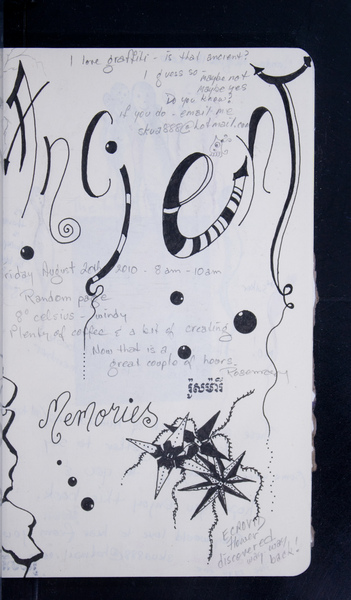 I love graffiti - is that ancient?
I guess so - maybe not
maybe yes
Do you know?
if you do - email me
skua888@hotmail.com
Ancient
Friday August 20th 2010 - 8am - 10am
Random page
8° celsius - windy
Plenty of coffee & a bit of creating
Now that is a
great couple of hours -
Rosemary
រ៉ូសម៉ារី
Memories
flower
discovered
way way
back!